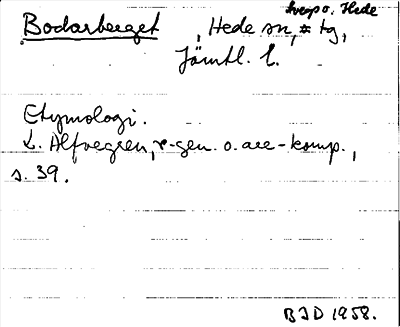 Bodarberget, Hede sn, * tg,
o. Hede
Jämtl. l.
Etymologi.
L. Alfvegren, r-gen. o. are-komp.,
s. 39.
BJD 1958.